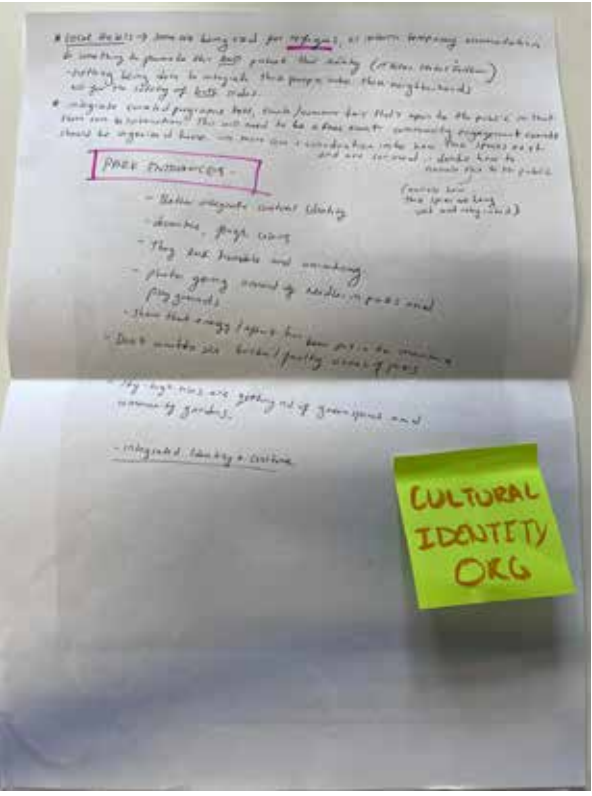 * Local Hotels → some are being used for refugees, as interim temporary accommodation
& something to promote this but protect their safety
- nothing being done to integrate these people into these neighborhoods
for the safety of both sides.
* integrate curated programs here, that's open to the public so that
This will need to be a free event. community engagement events
should be organised how these spaces exist
and are curated - decide how to
narrate this to the public
(narrate how
these spaces are being
used and integrated)
PARK ENTRANCES -
- Better integrate content identity
- signs
- They look horrible and uninviting.
- photos going around of needles in parks and
playgrounds
- show that energy / effort has been put in to
- Don't want to see broken / faulty areas of parks
- high-rises are getting rid of green spaces and
community gardens.
- integrated identity + culture
CULTURAL
IDENTITY
ORG